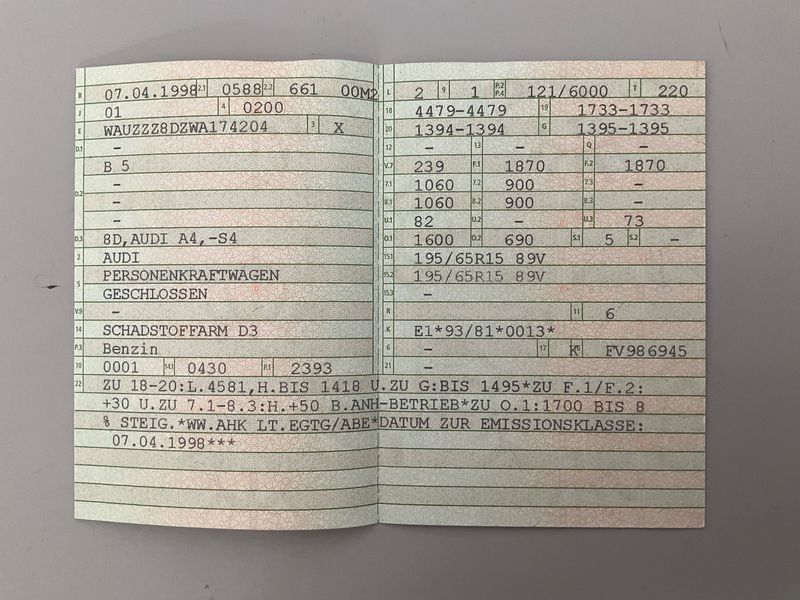 B 07.04.1998 2.1 0588 2.2 661 00M2
J 01 4 0200
E WAUZZZ8DZWA174204 3 X
D.1 –
B 5
D.2 –
–
–
D.3 8D,AUDI A4,-S4
2 AUDI
5 PERSONENKRAFTWAGEN
GESCHLOSSEN
V.9 –
14 SCHADSTOFFARM D3
P.3 Benzin
10 0001 14.1 0430 P.1 2393
L 2 9 1 P.2 P.4 121/6000 T 220
18 4479-4479 19 1733-1733
20 1394-1394 G 1395-1395
12 – 13 – Q –
V.7 239 F.1 1870 F.2 1870
7.1 1060 7.2 900 7.3 –
8.1 1060 8.2 900 8.3 –
U.1 82 U.2 – U.3 73
O.1 1600 O.2 690 S.1 5 S.2 –
15.1 195/65R15 89V
15.2 195/65R15 89V
15.3 –
R 11 6
K E1*93/81*0013*
6 – 17 K 16 FV986945
21 –
22 ZU 18-20:L.4581,H.BIS 1418 U.ZU G:BIS 1495*ZU F.1/F.2:
+30 U.ZU 7.1-8.3:H.+50 B.ANH-BETRIEB*ZU O.1:1700 BIS 8
% STEIG.*WW.AHK LT.EGTG/ABE*DATUM ZUR EMISSIONSKLASSE:
07.04.1998***